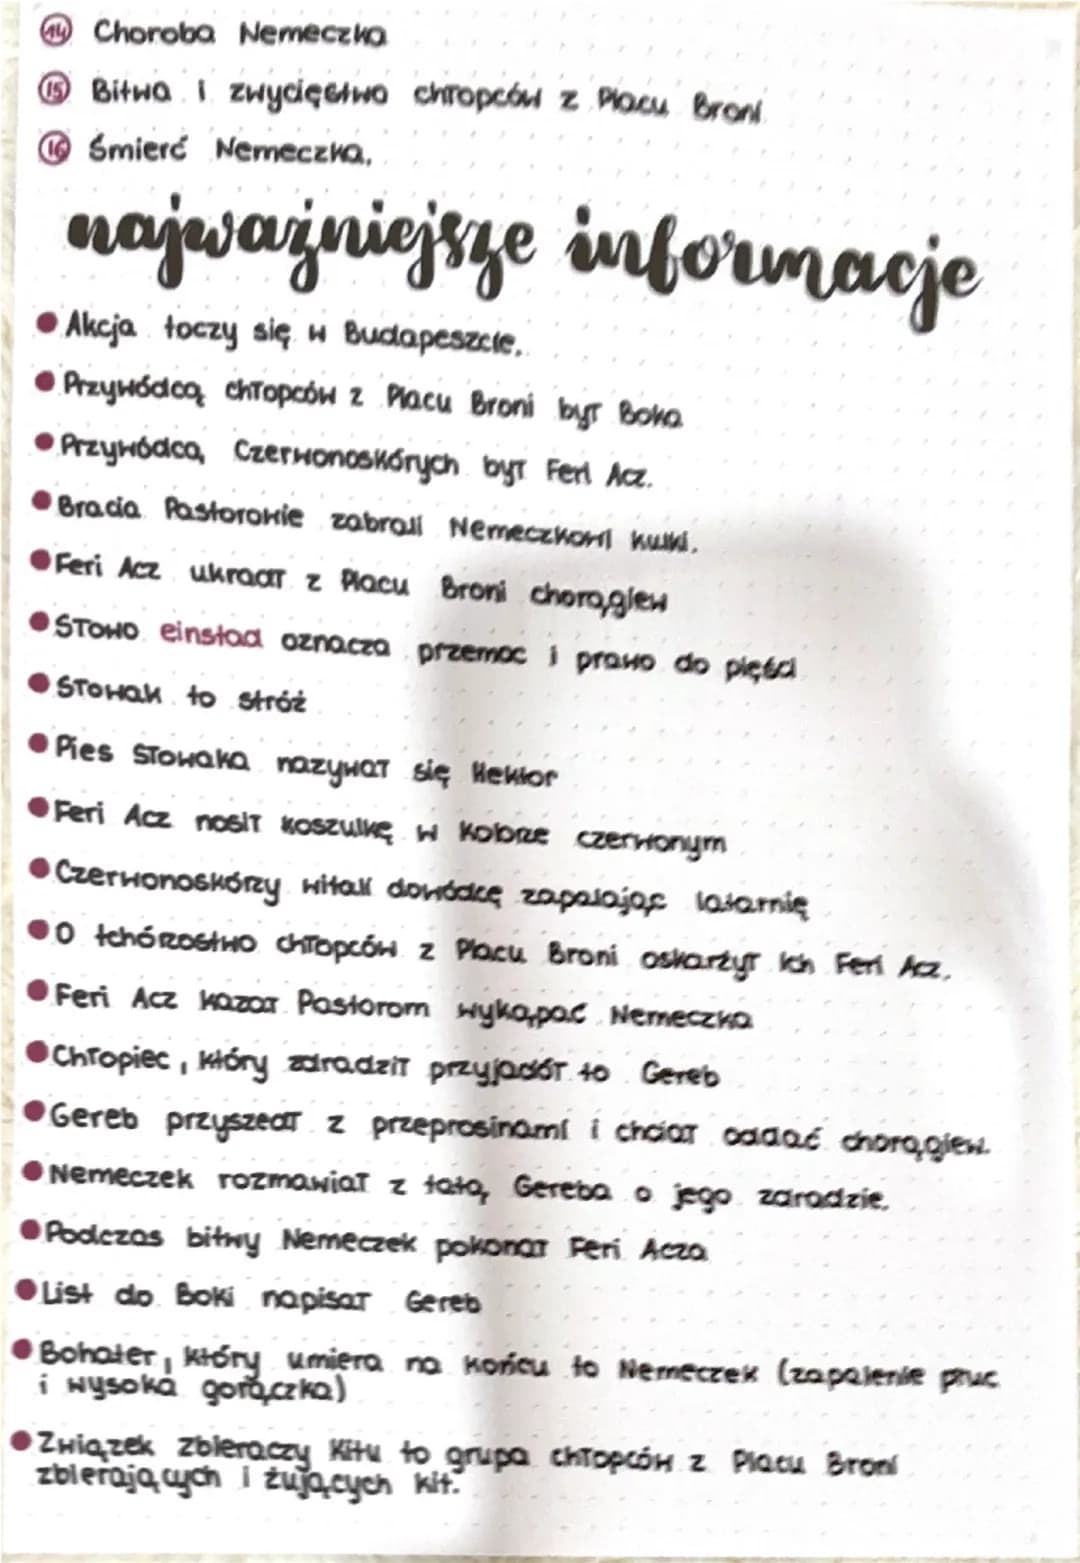 14 Choroba Nemeczka
15 Bitwa i zwycięstwo chłopców z Placu Broni
16 Śmierć Nemeczka.
najważniejsze informacje
• Akcja toczy się w Budapeszcie.
• Przywódcą chłopców z Placu Broni był Boka
• Przywódcą Czerwonoskórych był Feri Acz.
• Bracia Pastorowie zabrali Nemeczkowi kulki.
• Feri Acz ukradł z Placu Broni chorągiew
• Słowo einstad oznacza przemoc i prawo do pięści
• Słowak to stróż
• Pies Słowaka nazywał się Hektor
• Feri Acz nosił koszulkę w kolorze czerwonym
• Czerwonoskórzy witali dowódcę zapalając latarnię
• O tchórzostwo chłopców z Placu Broni oskarżył ich Feri Acz.
• Feri Acz kazał Pastorom wykąpać Nemeczka
• Chłopiec, który zdradził przyjaciół to Gereb
• Gereb przyszedł z przeprosinami i chciał oddać chorągiew.
• Nemeczek rozmawiał z tatą Gereba o jego zdradzie.
• Podczas bitwy Nemeczek pokonał Feri Acza
• List do Boki napisał Gereb
• Bohater, który umiera na końcu to Nemeczek (zapalenie płuc
i wysoka gorączka)
• Związek zbieraczy kitu to grupa chłopców z Placu Broni
zbierających i żujących kit.